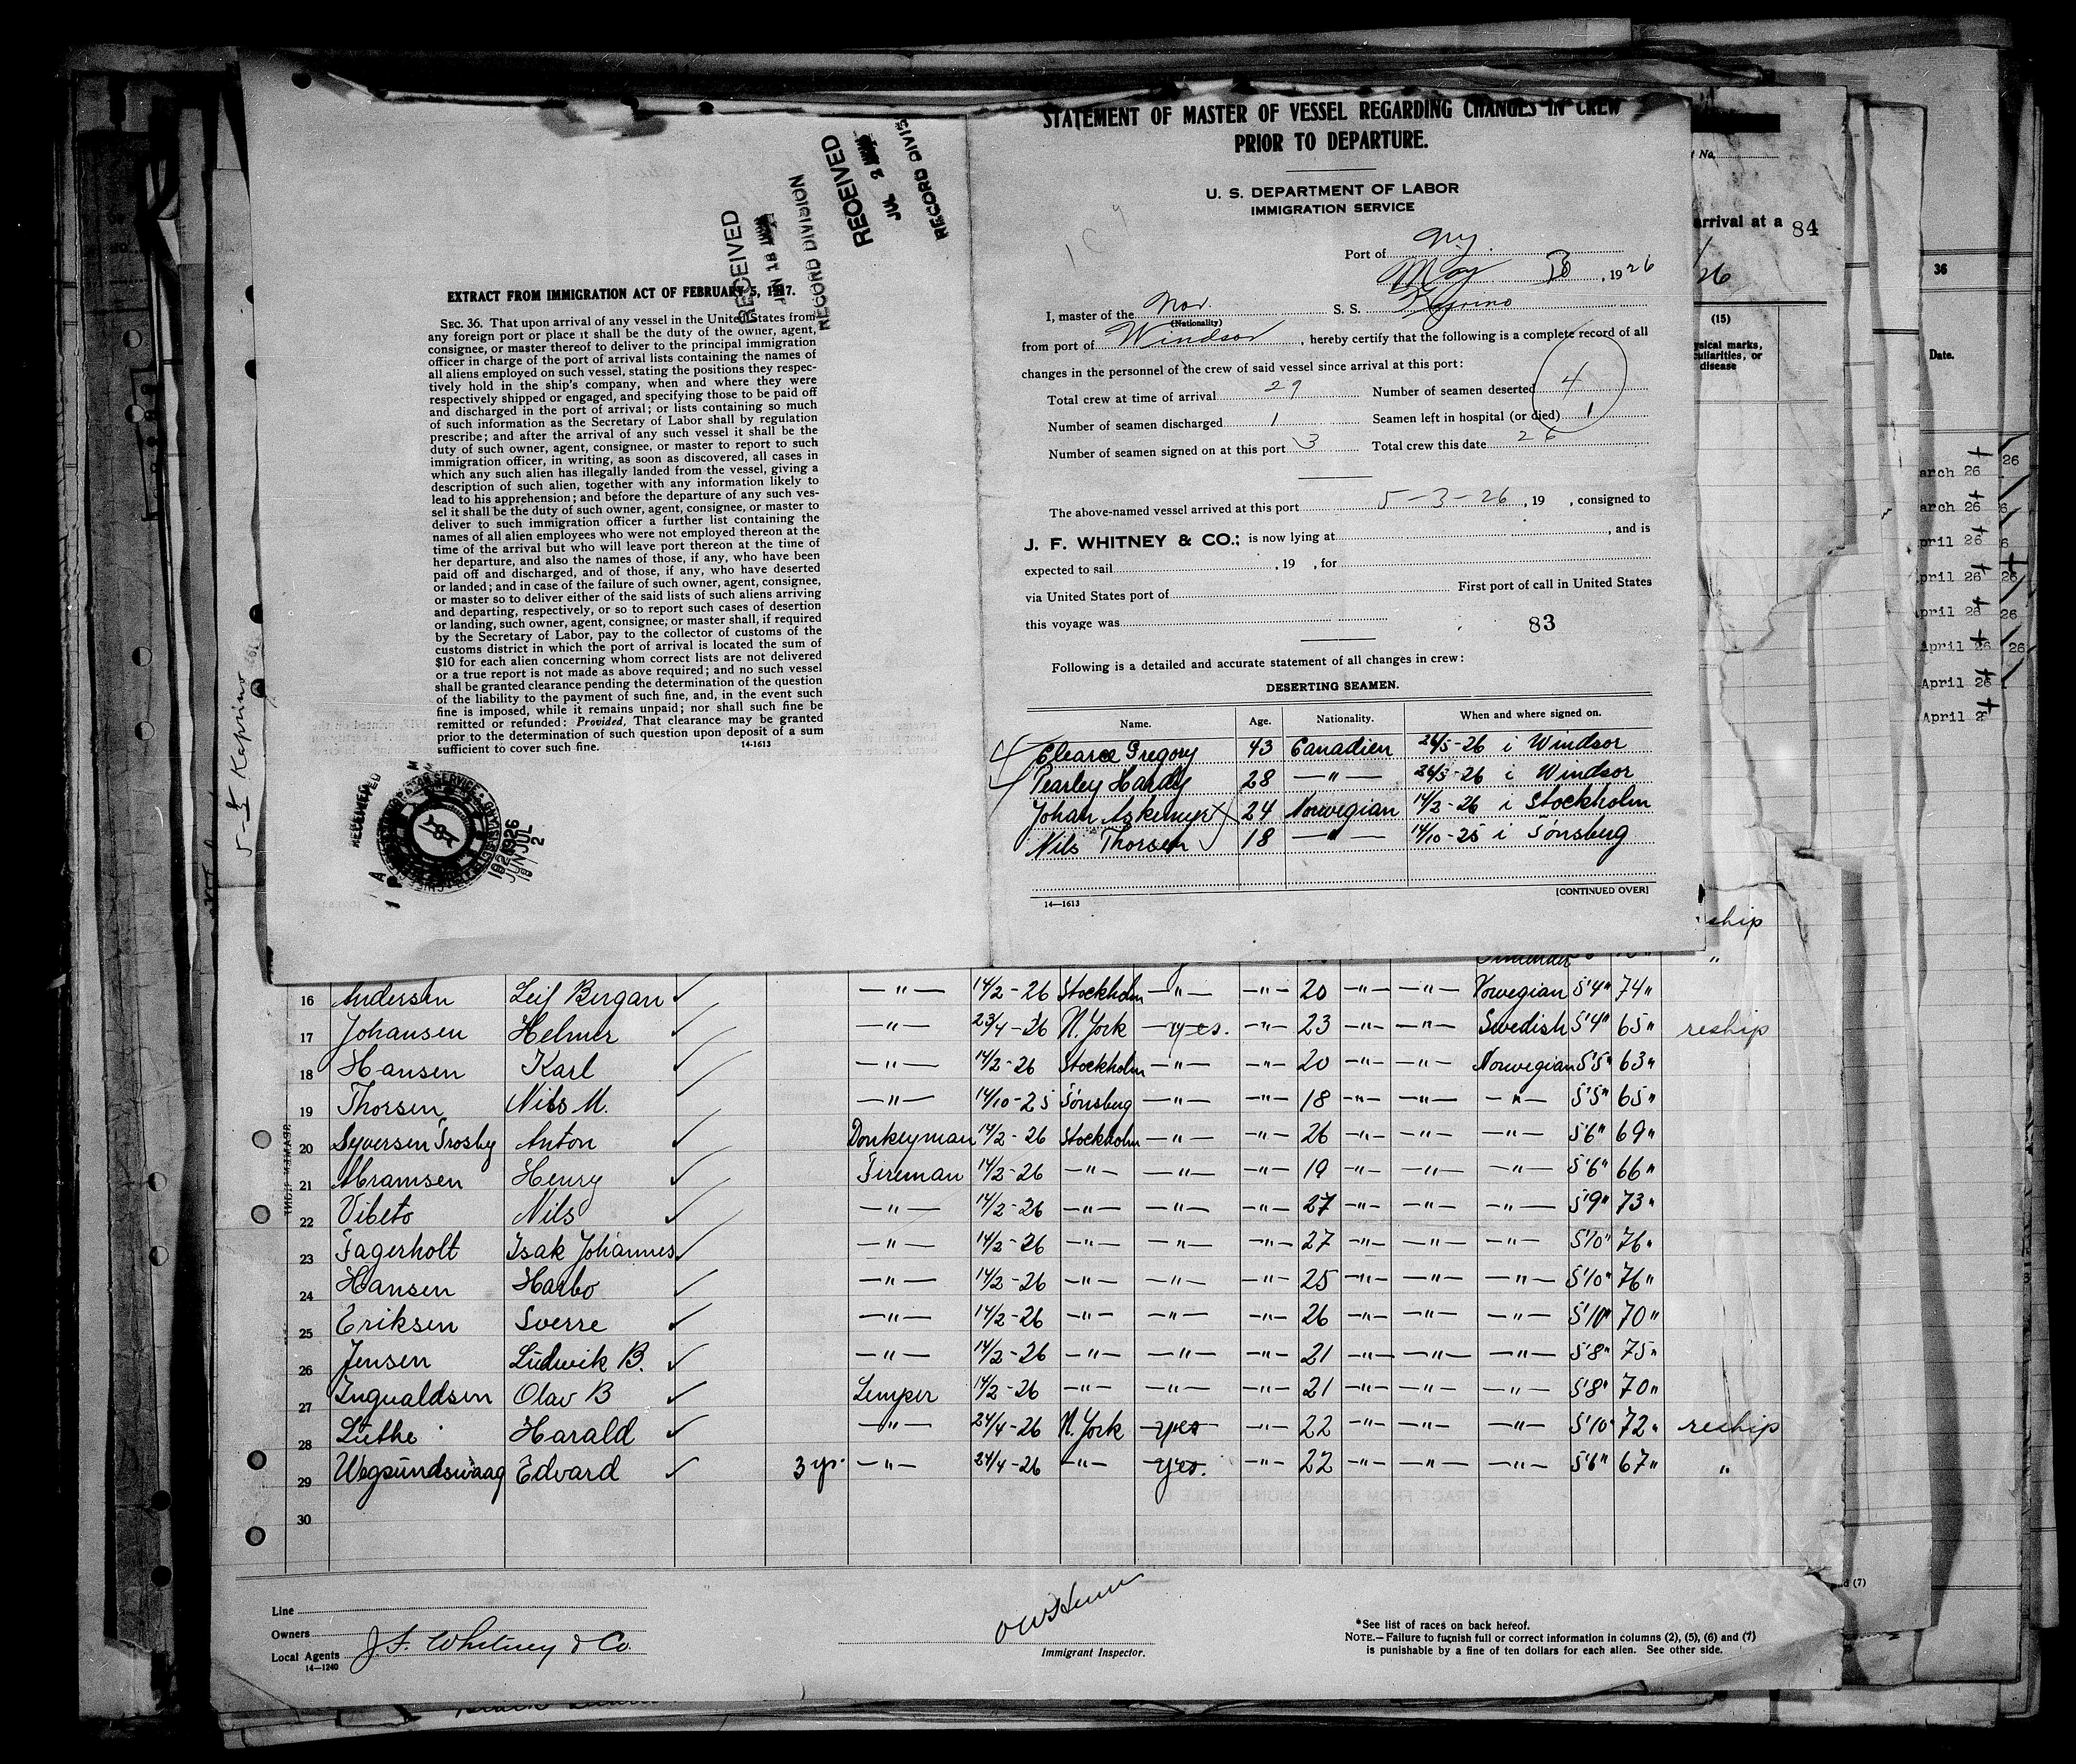 EXTRACT FROM IMMIGRATION ACT OF FEBRUARY 5, 1917.
SEC. 36. That upon arrival of any vessel in the United States from
any foreign port or place it shall be the duty of the owner, agent,
consignee, or master thereof to deliver to the principal immigration
officer in charge of the port of arrival lists containing the names of
all aliens employed on such vessel, stating the positions they respec-
tively hold in the ship's company, when and where they were
respectively shipped or engaged, and specifying those to be paid off
and discharged in the port of arrival; or lists containing so much
of such information as the Secretary of Labor shall by regulation
prescribe; and after the arrival of any such vessel it shall be the
duty of such owner, agent, consignee, or master to report to such
immigration officer, in writing, as soon as discovered, all cases in
which any such alien has illegally landed from the vessel, giving a
description of such alien, together with any information likely to
lead to his apprehension; and before the departure of any such ves-
sel it shall be the duty of such owner, agent, consignee, or master to
deliver to such immigration officer a further list containing the
names of all alien employees who were not employed thereon at the
time of the arrival but who will leave port thereon at the time of
her departure, and also the names of those, if any, who have been
paid off and discharged, and of those, if any, who have deserted
or landed; and in case of the failure of such owner, agent, consignee,
or master so to deliver either of the said lists of such aliens arriving
and departing, respectively, or so to report such cases of desertion
or landing, such owner, agent, consignee, or master shall, if required
by the Secretary of Labor, pay to the collector of customs of the
customs district in which the port of arrival is located the sum of
$10 for each alien concerning whom correct lists are not delivered
or a true report is not made as above required; and no such vessel
shall be granted clearance pending the determination of the question
of the liability to the payment of such fine, and, in the event such
fine is imposed, while it remains unpaid; nor shall such fine be
remitted or refunded: Provided, That clearance may be granted
prior to the determination of such question upon deposit of a sum
sufficient to cover such fine. 14-1613
RECEIVED
JUN 18
RECORD DIVISION
RECEIVED
JUL 2
RECORD DIVIS
STATEMENT OF MASTER OF VESSEL REGARDING CHANGES IN CREW
PRIOR TO DEPARTURE.
U. S. DEPARTMENT OF LABOR
IMMIGRATION SERVICE
Port of NY
May , 1926
I, master of the Nor. S. S.
(Nationality)
from port of Windsor, hereby certify that the following is a complete record of all
changes in the personnel of the crew of said vessel since arrival at this port:
Total crew at time of arrival 29 Number of seamen deserted 4
Number of seamen discharged 1 Seamen left in hospital (or died) 1
Number of seamen signed on at this port 3 Total crew this date 26
The above-named vessel arrived at this port 5-3-26, 19 , consigned to
J. F. WHITNEY & CO.; is now lying at , and is
expected to sail , 19 , for
via United States port of First port of call in United States
this voyage was
83
Following is a detailed and accurate statement of all changes in crew:
DESERTING SEAMEN.
Name. Age. Nationality. When and where signed on.
Clearce Gregory 43 Canadien 26/3-26 i Windsor
Pearley Hardy 28 —"— 26/3-26 i Windsor
Johan 24 Norwegian 14/2-26 i Stockholm
Nils Thorsen 18 —"— 14/10-25 i Tønsberg
[CONTINUED OVER]
14—1613
t No.
arrival at a 84
26
(15)
ysical marks,
culiarities, or
disease
36
Date.
arch 26
arch 26
pril 26
pril 26
pril 26
April 26
April 26
April 26
5-4 Kaprino
ship
"
16 Andersen Leif Bergan —"— 14/2-26 Stockholm —"— —"— 20 —"— —"— Norwegian 5'4" 74"
17 Johansen Helmer —"— 23/4-26 N.York yes. —"— 23 —"— —"— Swedish 5'4" 65" reship
18 Hansen Karl —"— 14/2-26 Stockholm —"— —"— 20 —"— —"— Norwegian 5'5" 63"
19 Thorsen Nils M. —"— 14/10-25 Tønsberg —"— —"— 18 —"— —"— —"— 5'5" 65"
20 Syversen Trosby Anton Donkeyman 14/2-26 Stockholm —"— —"— 26 —"— —"— —"— 5'6" 69"
21 Abramsen Henry Fireman 14/2-26 —"— —"— —"— 19 —"— —"— —"— 5'6" 66"
22 Vibeto Nils —"— 14/2-26 —"— —"— —"— 27 —"— —"— —"— 5'9" 73"
23 Fagerholt Isak Johannes —"— 14/2-26 —"— —"— —"— 27 —"— —"— —"— 5'10" 76"
24 Hansen Harbo —"— 14/2-26 —"— —"— —"— 25 —"— —"— —"— 5'10" 76"
25 Eriksen Sverre —"— 14/2-26 —"— —"— —"— 26 —"— —"— —"— 5'10" 70"
26 Jensen Ludwik B. —"— 14/2-26 —"— —"— —"— 21 —"— —"— —"— 5'8" 75"
27 Ingvaldsen Olav B Lemper 14/2-26 —"— —"— —"— 21 —"— —"— —"— 5'8" 70"
28 Luthe Harald —"— 24/4-26 N.York yes —"— 22 —"— —"— —"— 5'10" 72" reship
29 Wegsundsvaag Edvard 3 yr. —"— 24/4-26 —"— yes. —"— 22 —"— —"— —"— 5'6" 67" "
30
Line
Owners
Local Agents J. F. Whitney & Co.
14—1240
Immigrant Inspector.
*See list of races on back hereof.
NOTE.—Failure to furnish full or correct information in columns (2), (5), (6) and (7)
is punishable by a fine of ten dollars for each alien. See other side.